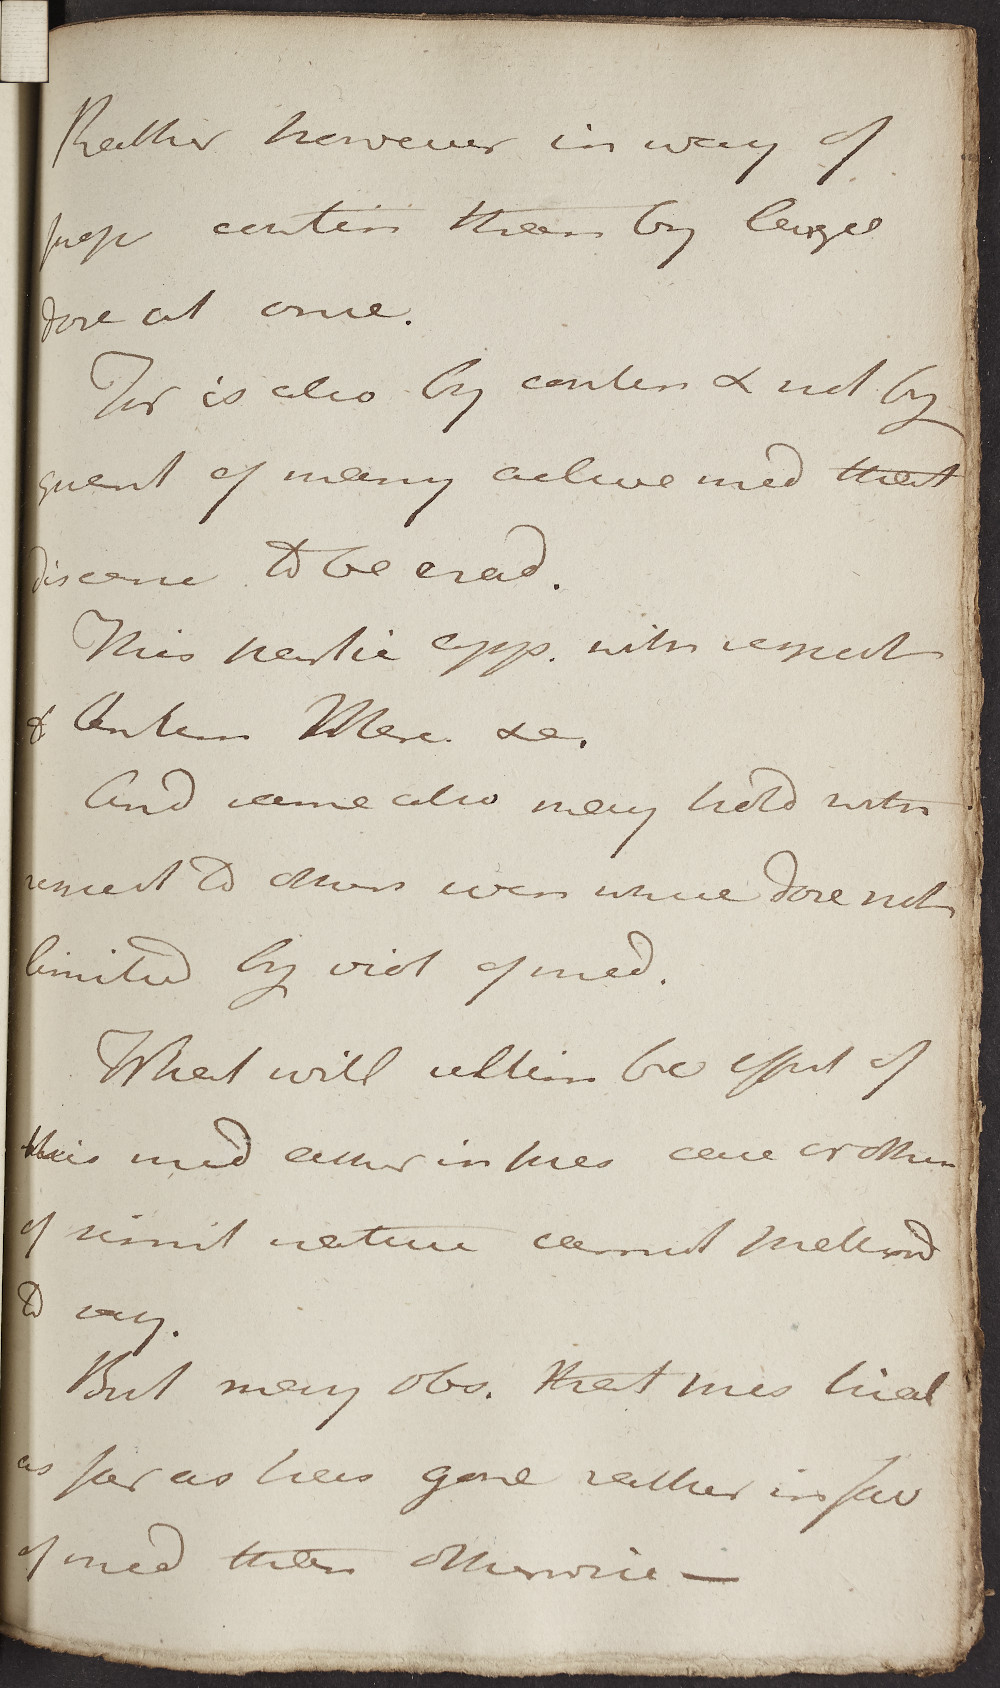 Rather however in way of
freqt contin than by large
dose at once.
For is also by contin & not by
quant of many active med that
disease to be erad.
This partic app. with respect
to Antim Merc. &c.
And same also may hold with
respect to others even where dose not
limited by viol of med.
What will ultim be effect of
this med either in pres case or other
of simil nature cannot pretend
to say.
But may obs. that pres trial
as far as has gone rather in fav
of med than otherwise —